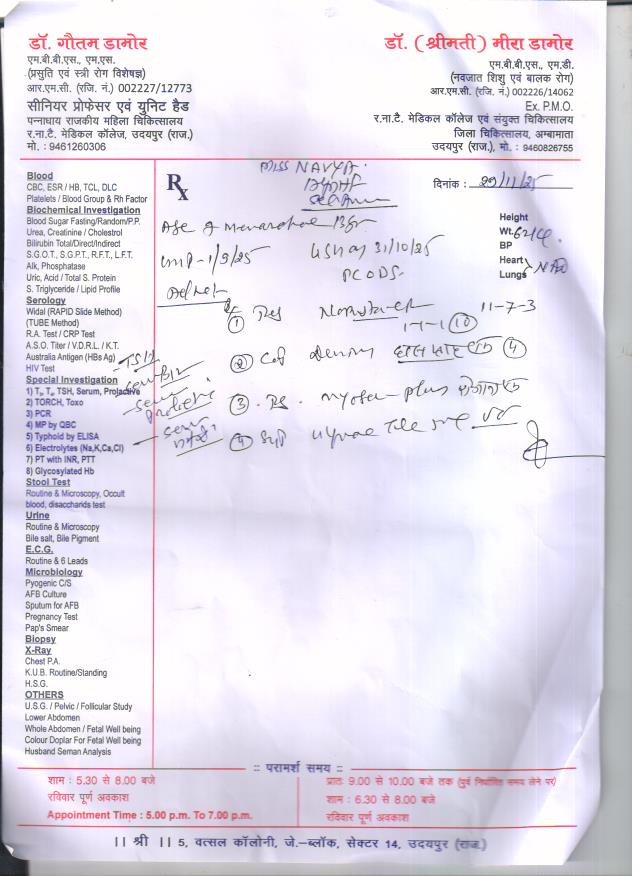 डॉ. गौतम डामोर
एम.बी.बी.एस., एम.एस.
(प्रसुति एवं स्त्री रोग विशेषज्ञ)
आर.एम.सी. (रजि. नं.) 002227/12773
सीनियर प्रोफेसर एवं युनिट हैड
पन्नाधाय राजकीय महिला चिकित्सालय
र.ना.टै. मेडिकल कॉलेज, उदयपुर (राज.)
मो. : 9461260306
डॉ. (श्रीमती) मीरा डामोर
एम.बी.बी.एस., एम.डी.
(नवजात शिशु एवं बालक रोग)
आर.एम.सी. (रजि. नं.) 002226/14062
Ex. P.M.O.
र.ना.टै. मेडिकल कॉलेज एवं संयुक्त चिकित्सालय
जिला चिकित्सालय, अम्बामाता
उदयपुर (राज.), मो. : 9460826755
Blood
CBC, ESR / HB, TCL, DLC
Platelets / Blood Group & Rh Factor
Biochemical Investigation
Blood Sugar Fasting/Random/P.P.
Urea, Creatinine / Cholestrol
Bilirubin Total/Direct/Indirect
S.G.O.T., S.G.P.T., R.F.T., L.F.T.
Alk, Phosphatase
Uric, Acid / Total S. Protein
S. Triglyceride / Lipid Profile
Serology
Widal (RAPID Slide Method)
(TUBE Method)
R.A. Test / CRP Test
A.S.O. Titer / V.D.R.L. / K.T.
Australia Antigen (HBs Ag)
HIV Test
Special Investigation
1) T₃, T₄, TSH, Serum, Prolactive
2) TORCH, Toxo
3) PCR
4) MP by QBC
5) Typhoid by ELISA
6) Electrolytes (Na,K,Ca,Cl)
7) PT with INR, PTT
8) Glycosylated Hb
Stool Test
Routine & Microscopy, Occult
blood, disaccharids test
Urine
Routine & Microscopy
Bile salt, Bile Pigment
E.C.G.
Routine & 6 Leads
Microbiology
Pyogenic C/S
AFB Culture
Sputum for AFB
Pregnancy Test
Pap's Smear
Biopsy
X-Ray
Chest P.A.
K.U.B. Routine/Standing
H.S.G.
OTHERS
U.S.G. / Pelvic / Follicular Study
Lower Abdomen
Whole Abdomen / Fetal Well being
Colour Doplar For Fetal Well being
Husband Seman Analysis
TSH
Rx
MISS NAVYA
दिनांक : 29/11/25
Height
Wt. 
BP
Heart
Lungs NAD
Age of Menarche 13yr
LMP-1/9/25 USG 31/10/25
PCODS
Adv
① 11-7-3
1-1-1 ⑩
② Cap ④
③
④ Syp
:: परामर्श समय ::
शाम : 5.30 से 8.00 बजे
रविवार पूर्ण अवकाश
Appointment Time : 5.00 p.m. To 7.00 p.m.
प्रातः 9.00 से 10.00 बजे तक (पुर्व निर्धारित समय लेने पर)
शाम : 6.30 से 8.00 बजे
रविवार पूर्ण अवकाश
।। श्री ।। 5, वत्सल कॉलोनी, जे.–ब्लॉक, सेक्टर 14, उदयपुर (राज.)